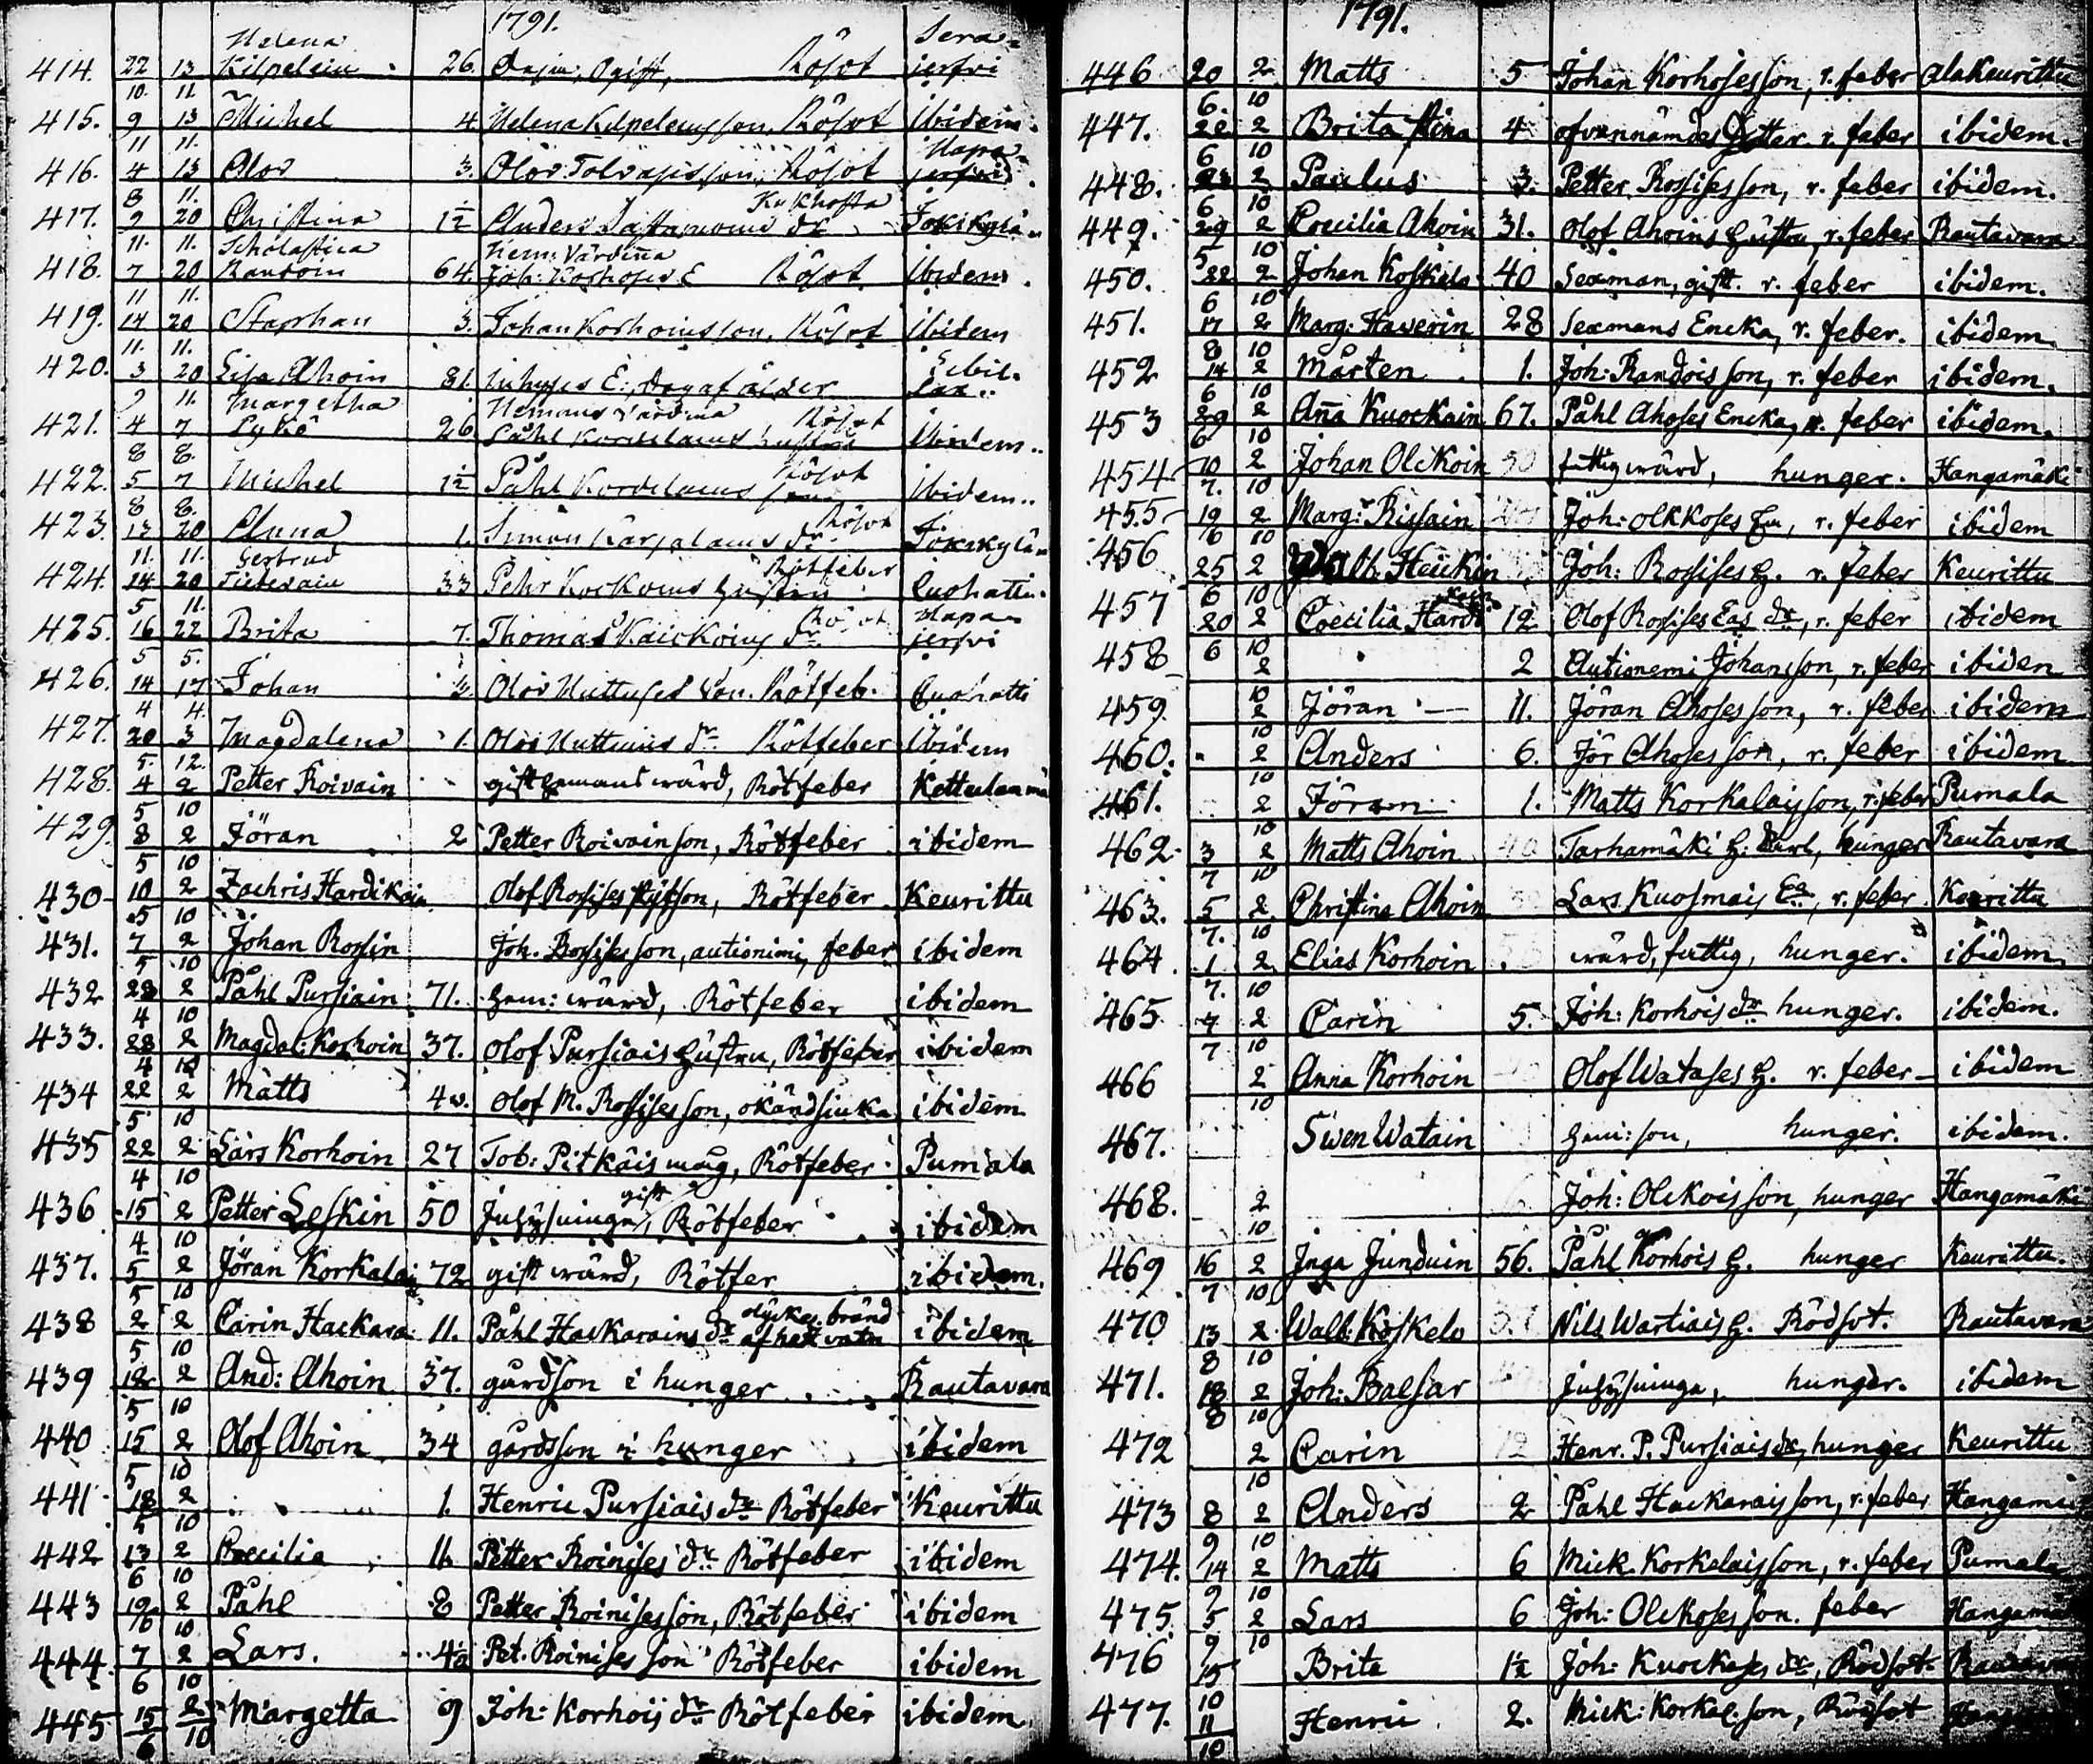 1791.
414. 22/10 13/11 Helena Kilpelein 26. ogift, Rösot Sera=jerfvi
415. 9/11 13/11 Michel 4. Helena Kilpeleins son, Rösot Ibidem.
416. 4/8 13/11 Olov 3. Olov Tolvasis son, Rösot Hapajerfvi
417. 9/11 20/11 Christina 1½ Anders dr Kikhosta Jokikylä
418. 7/11 20/11 Scholastica 64. Hem: Värdinna Joh: Korhoses E Rösot Ibidem.
419. 14/11 20/11 Staphan 3. Johan Korhoins son, Rösot Ibidem
420. 3/9 20/11 Lisa Ahoin 81. Inhyses E:, dog af ålder
421. 4/8 7/8 Margetha Lykö 26. Hemans Värdina Påhl hustru Rösot Ibidem..
422. 5/8 7/8 Michel 1½ Påhl son Rösot Ibidem..
423. 13/11 20/11 Anna 1. Simon Karjalains dr Rösot Jokikylä
424. 14/5 20/11 Gertrud 33 Pehr Kockoins hustru Rötfeber Luohatti.
425. 16/5 22/5 Brita 7. Thomas Kaickoins dr Rösot Hapajerfvi
426. 14/4 17/4 Johan Olov Huttuses Son. Rötfeb. Luohatti
427. 20/5 3/12 Magdalena 1. Olov Huttuins dr Rötfeber Ibidem
428. 4/5 2/10 Petter Roivain gift hemans wärd, Rötfeber Kottulanmä
429. 8/5 2/10 Jöran 2 Petter Roivainson, Rötfeber ibidem
430 10/5 2/10 Zachris Hardikain Olof Rossises styfson, Rötfeber Keurittu
431. 7/5 2/10 Johan Rossin Joh. Rossises son, autionimi, feber ibidem
432 28/4 2/10 Påhl Pursiain 71. hem: wärd, Rötfeber ibidem
433. 28/4 2/10 Magdal: Korhoin 37. Olof Pursiais hustru, Rötfeber ibidem
434 22/5 2/10 Matts 4w. Olof M. Rossises son, okändsiuka ibidem
435 22/4 2/10 Lars Korhoin 27 Tob: Pitkäis måg, Rötfeber Pumala
436 15/4 2/10 Petter Leskin 50 Inhysinge gift, Rötfeber ibidem
437. 5/5 2/10 Jöran Korkalain 72 gift wärd, Rötfer ibidem.
438 2/5 2/10 Carin Hackara 11. Påhl Hackarains dr olyckel. bränd af hett vatn ibidem
439 12/5 2/10 And: Ahoin 37. gårdson i hunger Rautavara
440 15/5 2/10 Olof Ahoin 34 gårdsson i hunger ibidem
441 18/5 2/10 1. Henric Pursiais dr Rötfeber Keurittu
442 13/6 2/10 Coecilia 11 Petter Roinises dr Rötfeber ibidem
443 19/10 2/10 Påhl 8 Petter Roinises son, Rötfeber ibidem
444. 7/6 2/10 Lars. 4½ Pet. Roinises son Rötfeber ibidem
445 15/6 2/10 Margetta 9 Joh: Korhois dr Rötfeber ibidem
1791.
446 20/6 2/10 Matts 5 Johan Korhoses son, r. feber alaKeurittu
447. 22/6 2/10 Brita Stina 4 ofvannämdes Dotter. r. feber ibidem.
448. 23/6 2/10 Paulus 3. Petter Rossises son, r. feber ibidem.
449. 29/5 2/10 Coecilia Ahoin 31. Olof Ahoins hustru, r. feber Rautavara
450. 22/6 2/10 Johan Koskelo 40 Sexman, gift. r. feber ibidem.
451. 17/8 2/10 Marg: Haverin 28 Sexmans Encka, r. feber. ibidem
452 14/6 2/10 Mårten 1. Joh: Randois son, r. feber ibidem.
453 29/6 2/10 Anna Kuockain 67. Påhl Ahoses Encka, r. feber ibidem.
454 10/7. 2/10 Johan Olckoin fattig wärd, hunger. Hangamäki
455 19/6 2/10 Marg: Rissain Joh: Olkkoses hu, r. feber ibidem
456 25/6 2/10 Walb. Heickin Joh: Rossises h. r. feber Keurittu
457 20/6 2/10 Coecilia Hardikain 12 Olof Rossises Eas dr, r. feber ibidem
458 2/10 2 Autionemi Johansson, r. feber ibiden
459. 2/10 Jöran 11. Jöran Ahoses son, r. feber ibidem
460. 2/10 Anders 6. Jör Ahoses son, r. feber ibidem
461. 2/10 Jöran 1. Matts Korkalais son, r. feber Pumala
462. 3/7 2/10 Matts Ahoin 40 Tarhamäki h: karl, hunger Rautavara
463. 5/7. 2/10 Christina Ahoin Lars Kuosmais Ea, r. feber. Keurittu
464. 1/7. 2/10 Elias Korhoin wärd, fattig, hunger. ibidem.
465 4/7 2/10 Carin 5. Joh: Korhois dr hunger. ibidem.
466 2/10 Anna Korhoin Olof Watases h. r. feber ibidem
467. Swen Watain hem: son, hunger. ibidem.
468. 2/10 Joh: Olckois son, hunger Hangamäki
469 16/7 2/10 Inga Junduin 56. Påhl Korhois h. hunger Keurittu.
470 13/8 2/10 Walb: Koskelo Nils Wartiais h. Rödsot. Rautavara
471. 18/8 2/10 Joh: Balsar Inhysinge, hunger. ibidem
472 2/10 Carin 12 Henr. P. Pursiais dr, hunger Keurittu
473 8/9 2/10 Anders 2 Påhl Hackarais son, r. feber Hangamäki
474. 14/9 2/10 Matts 6 Mick. Korkelaisson, r. feber Pumala
475. 5/9 2/10 Lars 6 Joh: Olckoses son. feber Hangamä
476 15/10 Brita 1½ Joh: Kuockases dr, Rödsot Rautavara
477. 11/10 Henric 2. Mick: Korkal. son, Rödsot